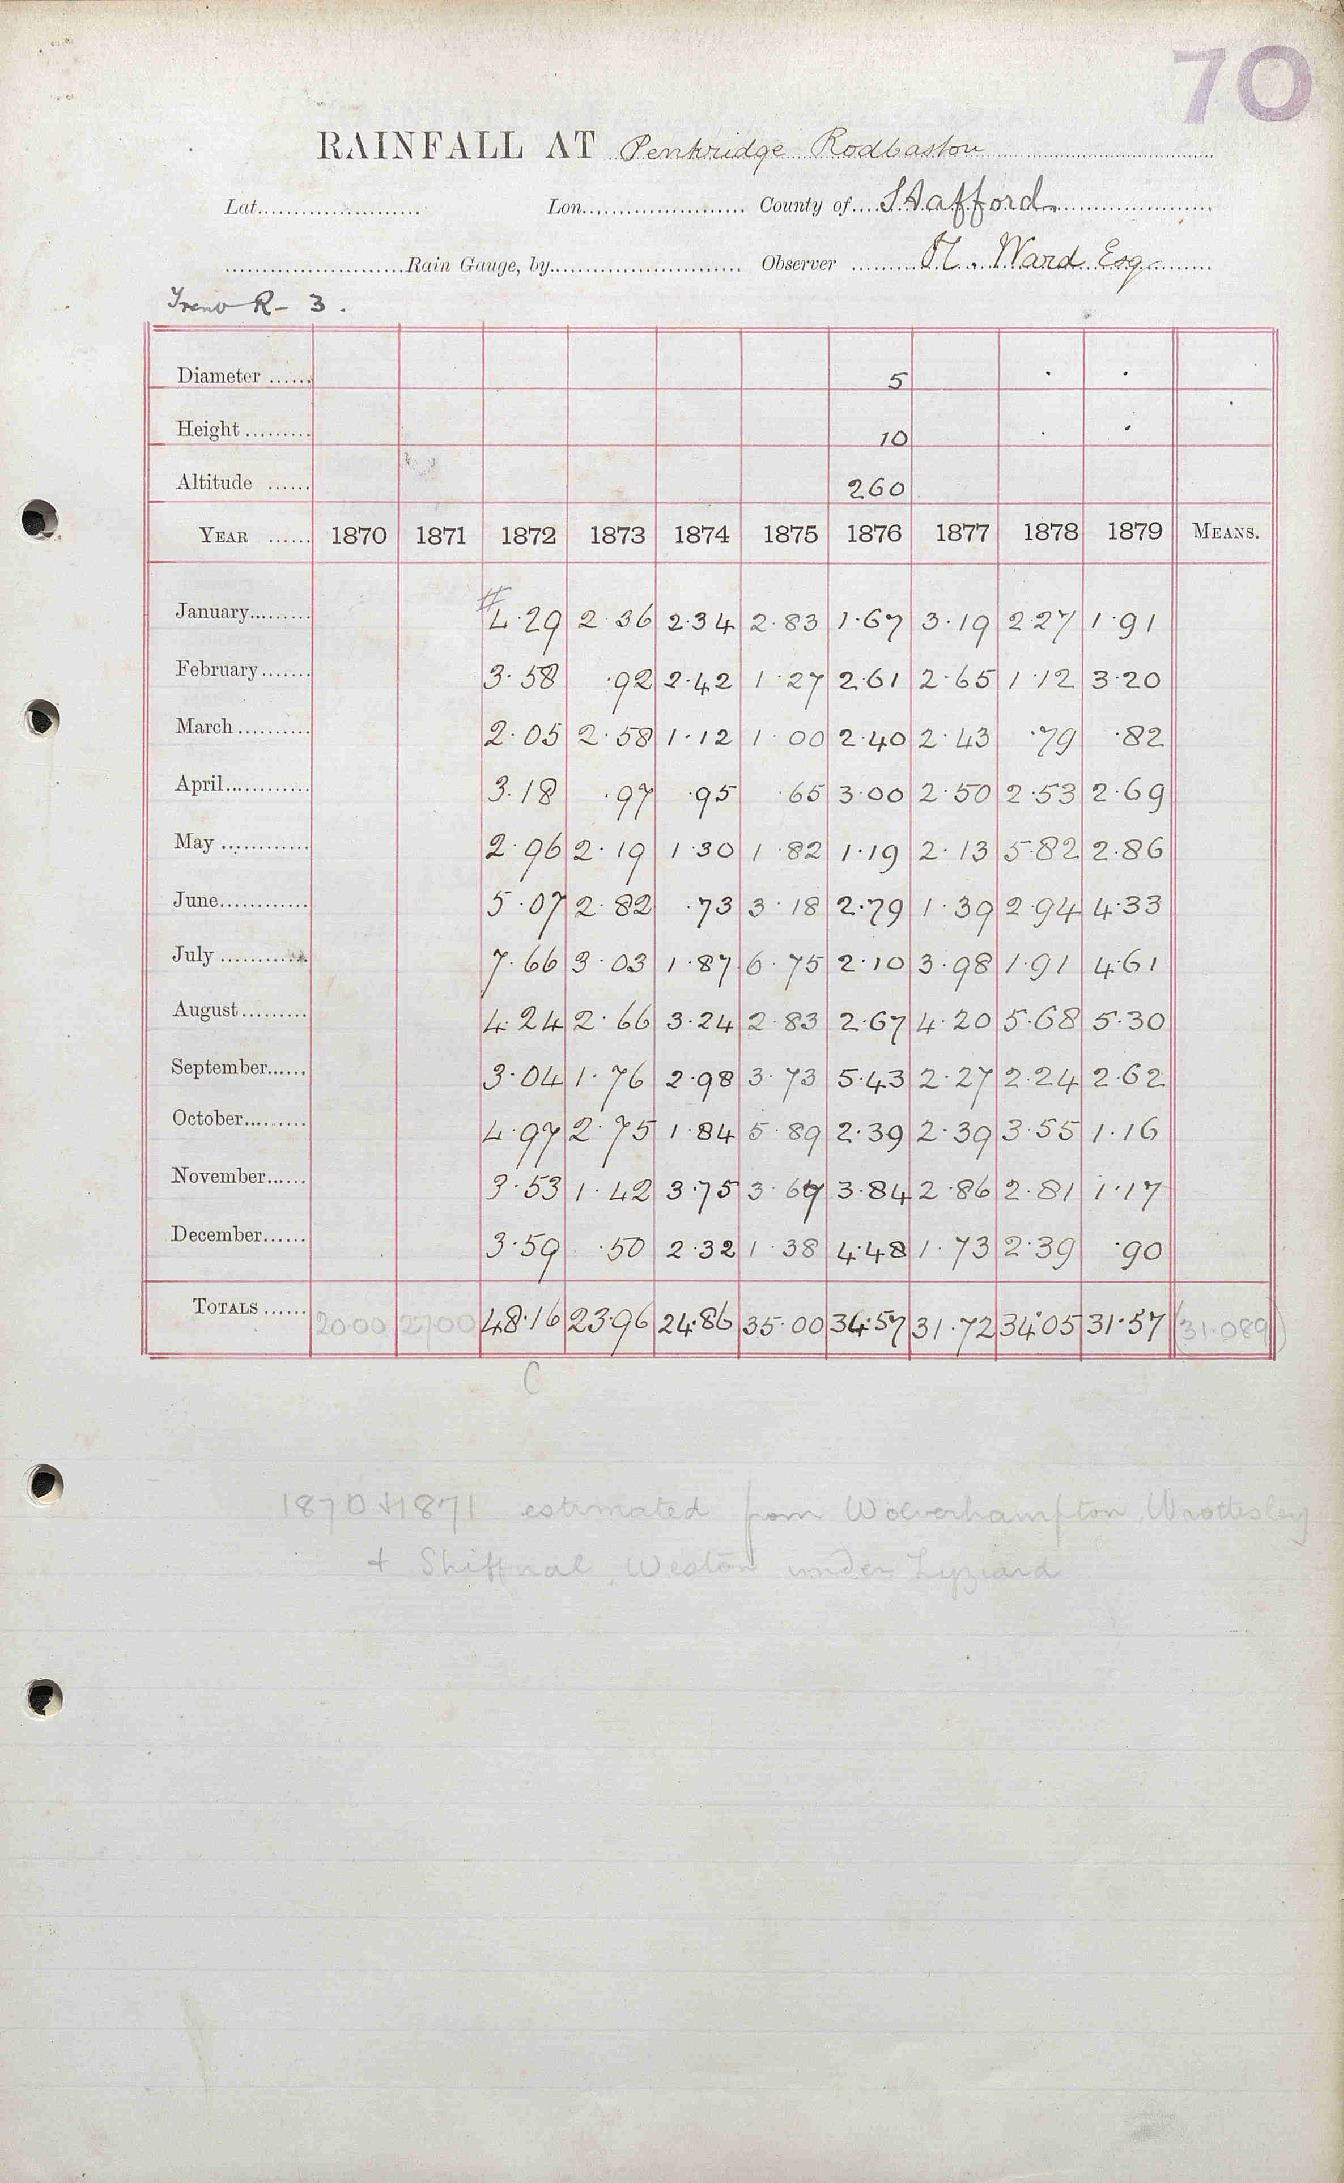 70
RAINFALL AT Penkridge Rodbaston
Lat. Lon. County of Stafford.
Rain Gauge, by Observer H. Ward Esq
Trent R - 3.
Diameter 5
Height 10
Altitude 260
YEAR 1870 1871 1872 1873 1874 1875 1876 1877 1878 1879 MEANS.
January # 4.29 2.36 2.34 2.83 1.67 3.19 2.27 1.91
February 3.58 .92 2.42 1.27 2.61 2.65 1.12 3.20
March 2.05 2.58 1.12 1.00 2.40 2.43 .79 .82
April 3.18 .97 .95 .65 3.00 2.50 2.53 2.69
May 2.96 2.19 1.30 1.82 1.19 2.13 5.82 2.86
June 5.07 2.82 .73 3.18 2.79 1.39 2.94 4.33
July 7.66 3.03 1.87 6.75 2.10 3.98 1.91 4.61
August 4.24 2.66 3.24 2.83 2.67 4.20 5.68 5.30
September 3.04 1.76 2.98 3.73 5.43 2.27 2.24 2.62
October 4.97 2.75 1.84 5.89 2.39 2.39 3.55 1.16
November 3.53 1.42 3.75 3.67 3.84 2.86 2.81 1.17
December 3.59 .50 2.32 1.38 4.48 1.73 2.39 .90
TOTALS 20.00 27.00 48.16 23.96 24.86 35.00 34.57 31.72 34.05 31.57 (31.089)
C
1870 + 1871 estimated from Wolverhampton, Wrottesley
+ Shiffnal, Weston under Lyziard